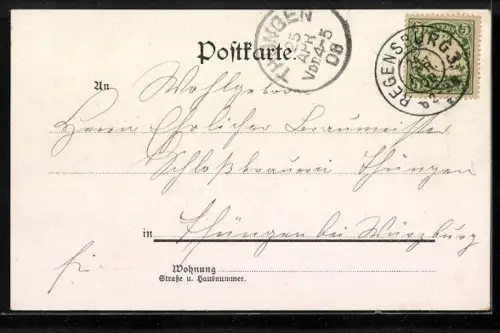 Postkarte.
THÜNGEN
25
APR
Vor.4-5
08
REGENSBURG 3
5
An Wohlgeboren
Herrn Ehrlicher Braumeister
Schloßbrauerei Thüngen
in Thüngen bei Würzburg
Wohnung
Straße u. Hausnummer.